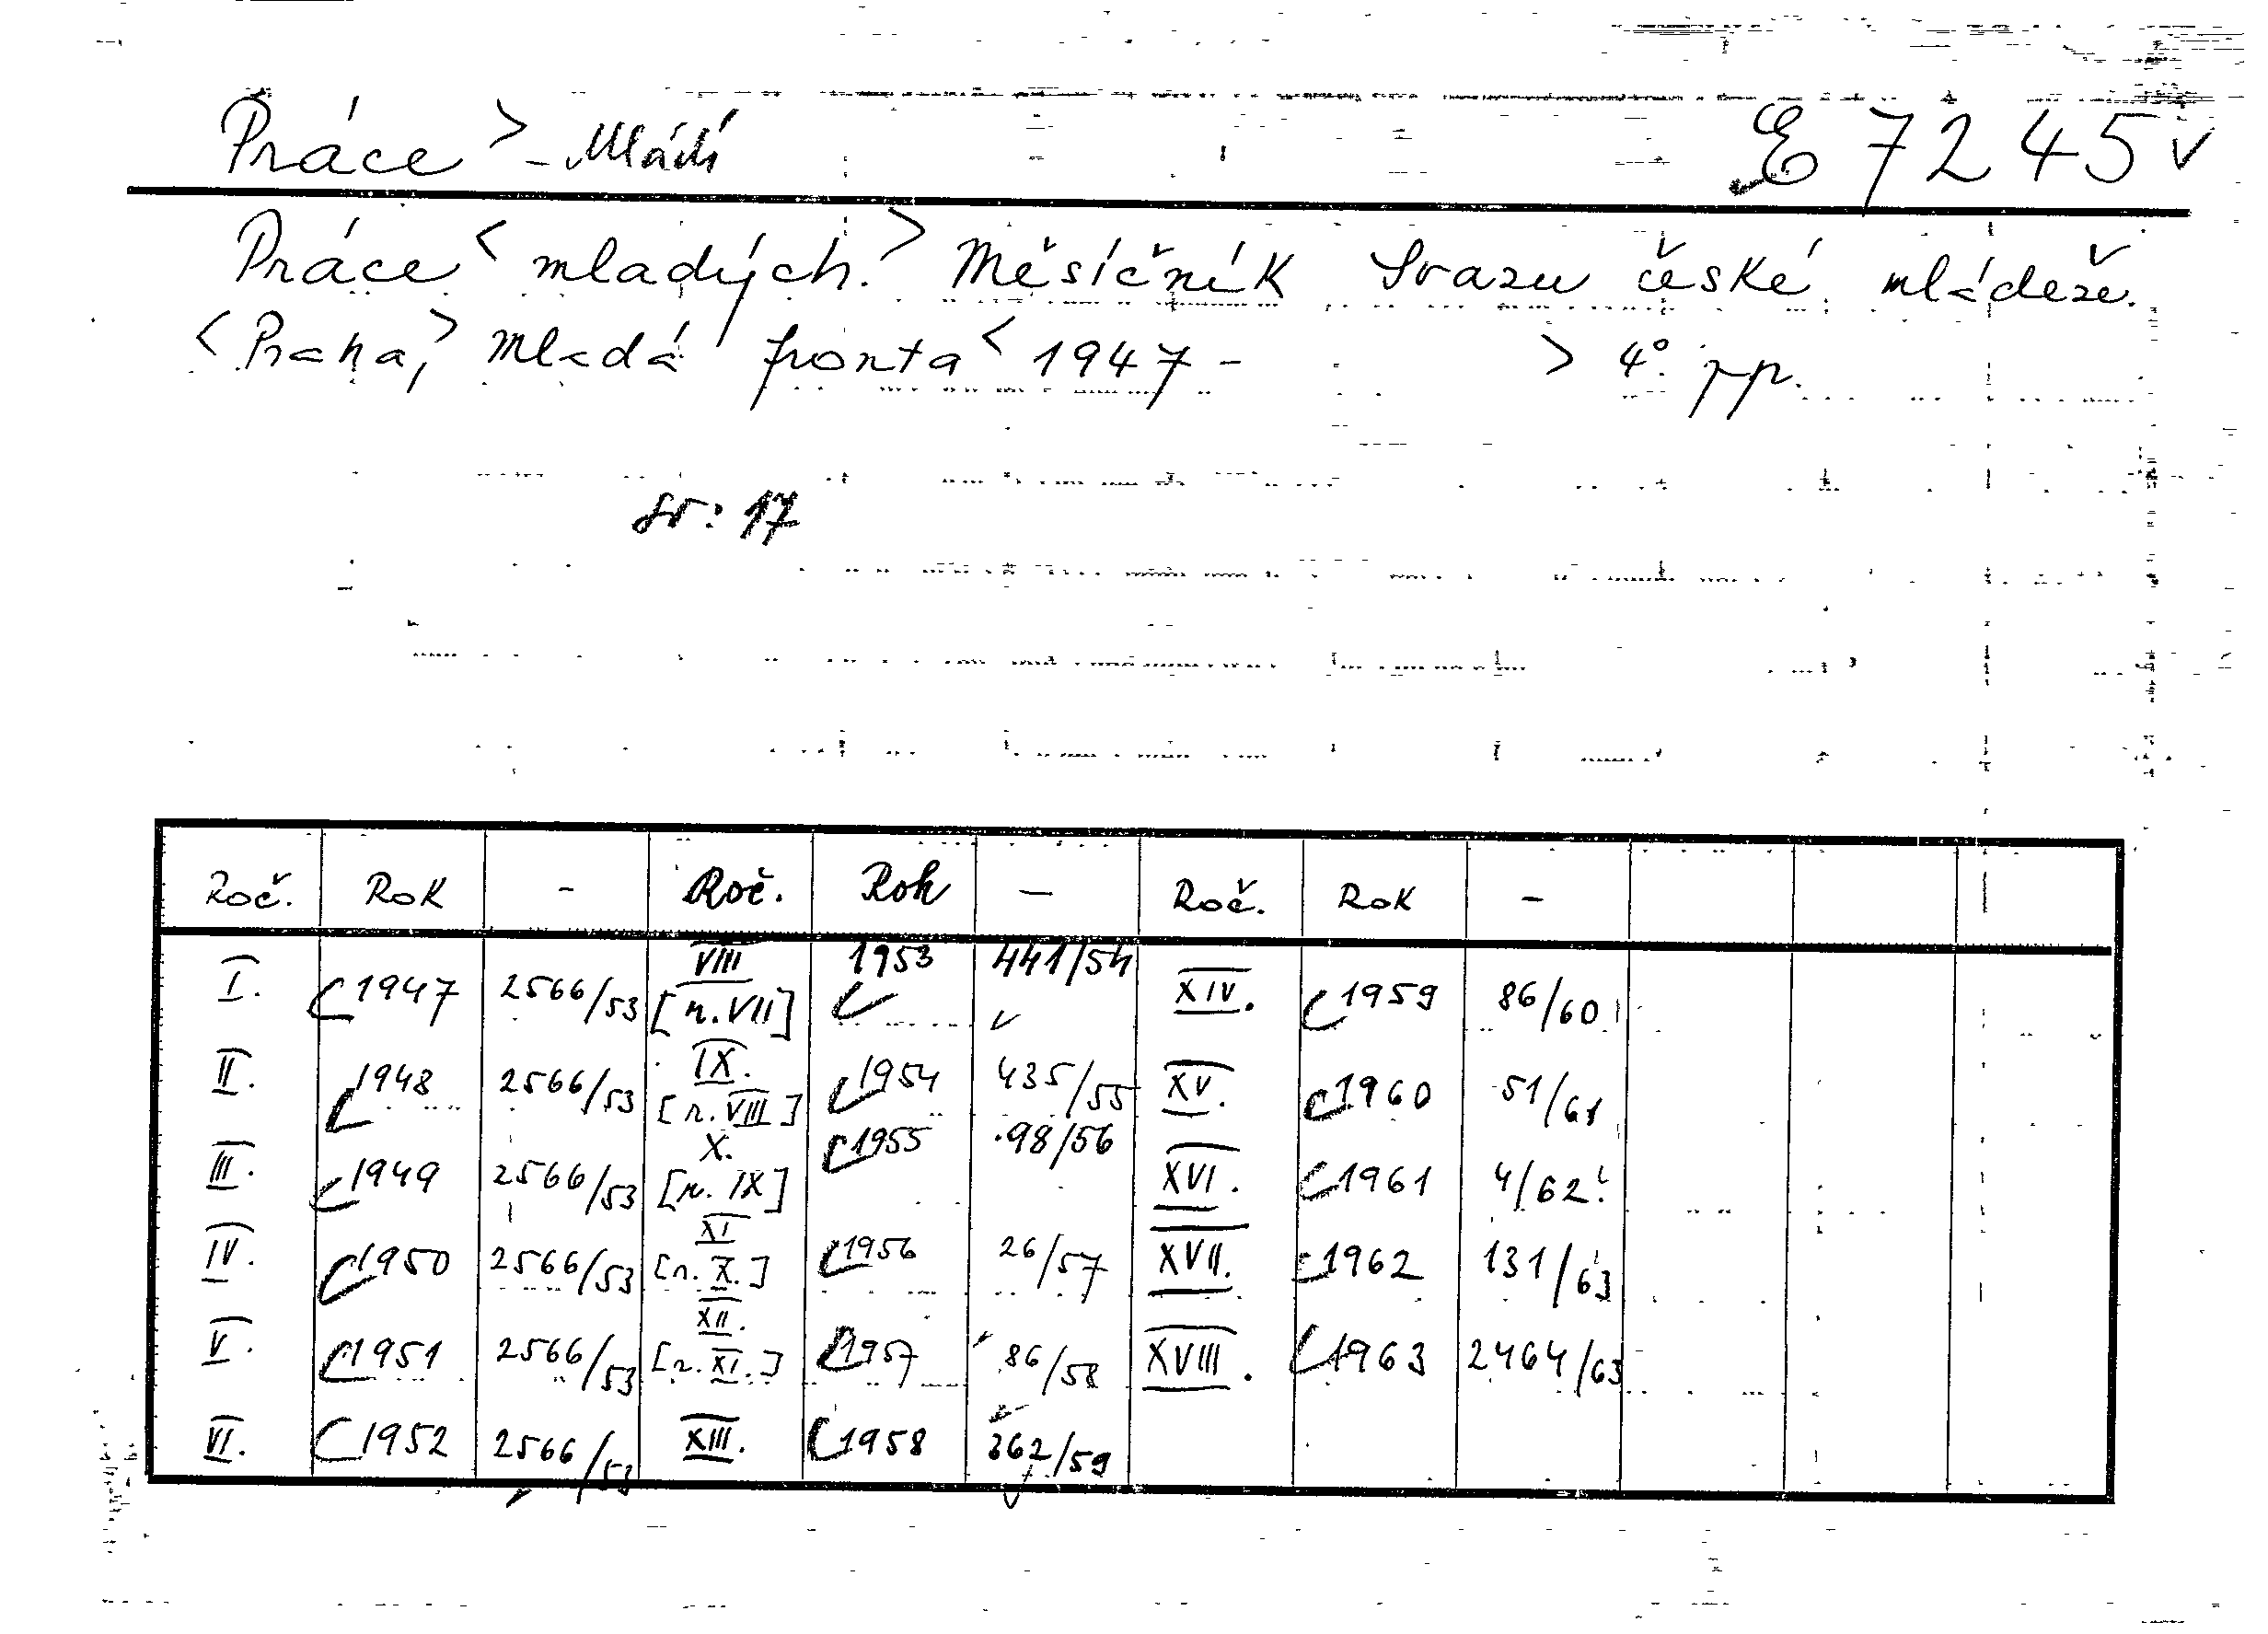 Práce > - Mládí E 7245
Práce < mladých. > Měsíčník Svazu české mládeže.
< Praha, > Mladá fronta < 1947 - > 4° pp.
sv: 17
Roč. Rok - Roč. Rok — Roč. Rok -
I. 1947 2566/53 VIII [n. VII] 1953 441/54 XIV. 1959 86/60
II. 1948 2566/53 IX. [n. VIII] 1954 435/55 XV. 1960 51/61
III. 1949 2566/53 X. [n. IX] 1955 98/56 XVI. 1961 4/62
IV. 1950 2566/53 XI [n. X.] 1956 26/57 XVII. 1962 131/63
V. 1951 2566/53 XII. [n. XI.] 1957 86/58 XVIII. 1963 2464/63
VI. 1952 2566/53 XIII. 1958 362/59